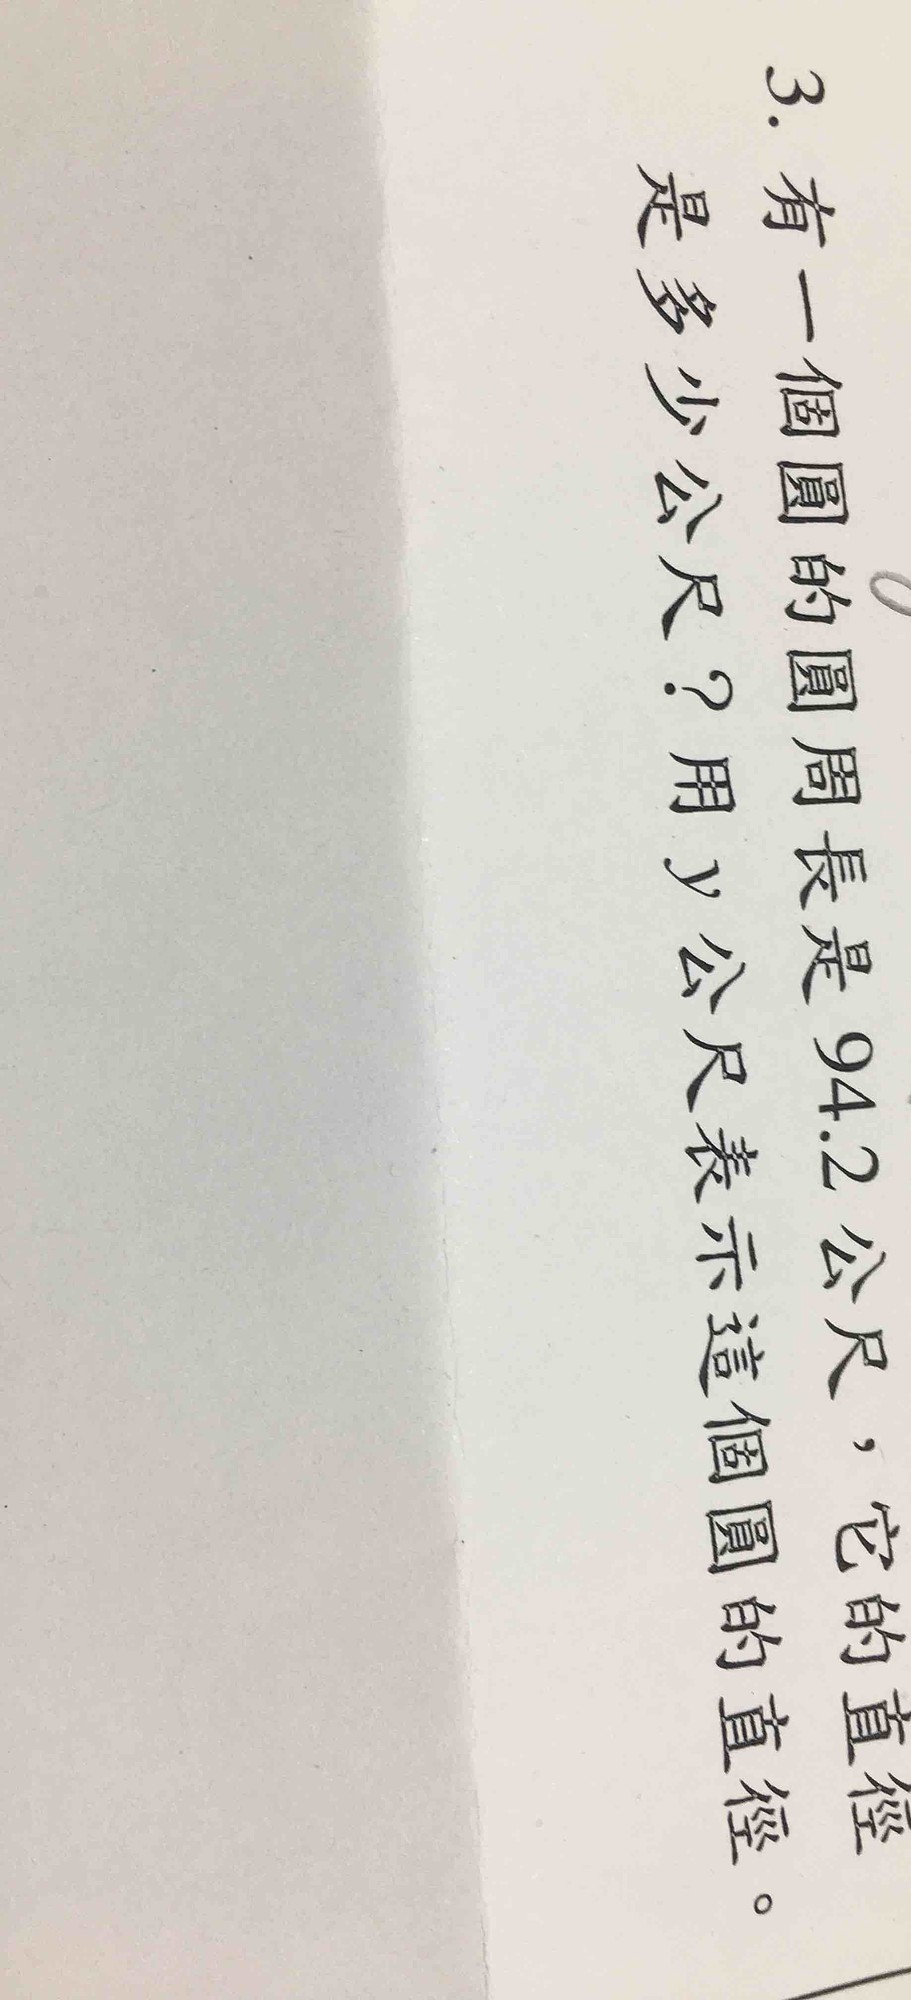 3. 有一個圓的圓周長是94.2公尺，它的直徑
是多少公尺？用y公尺表示這個圓的直徑。